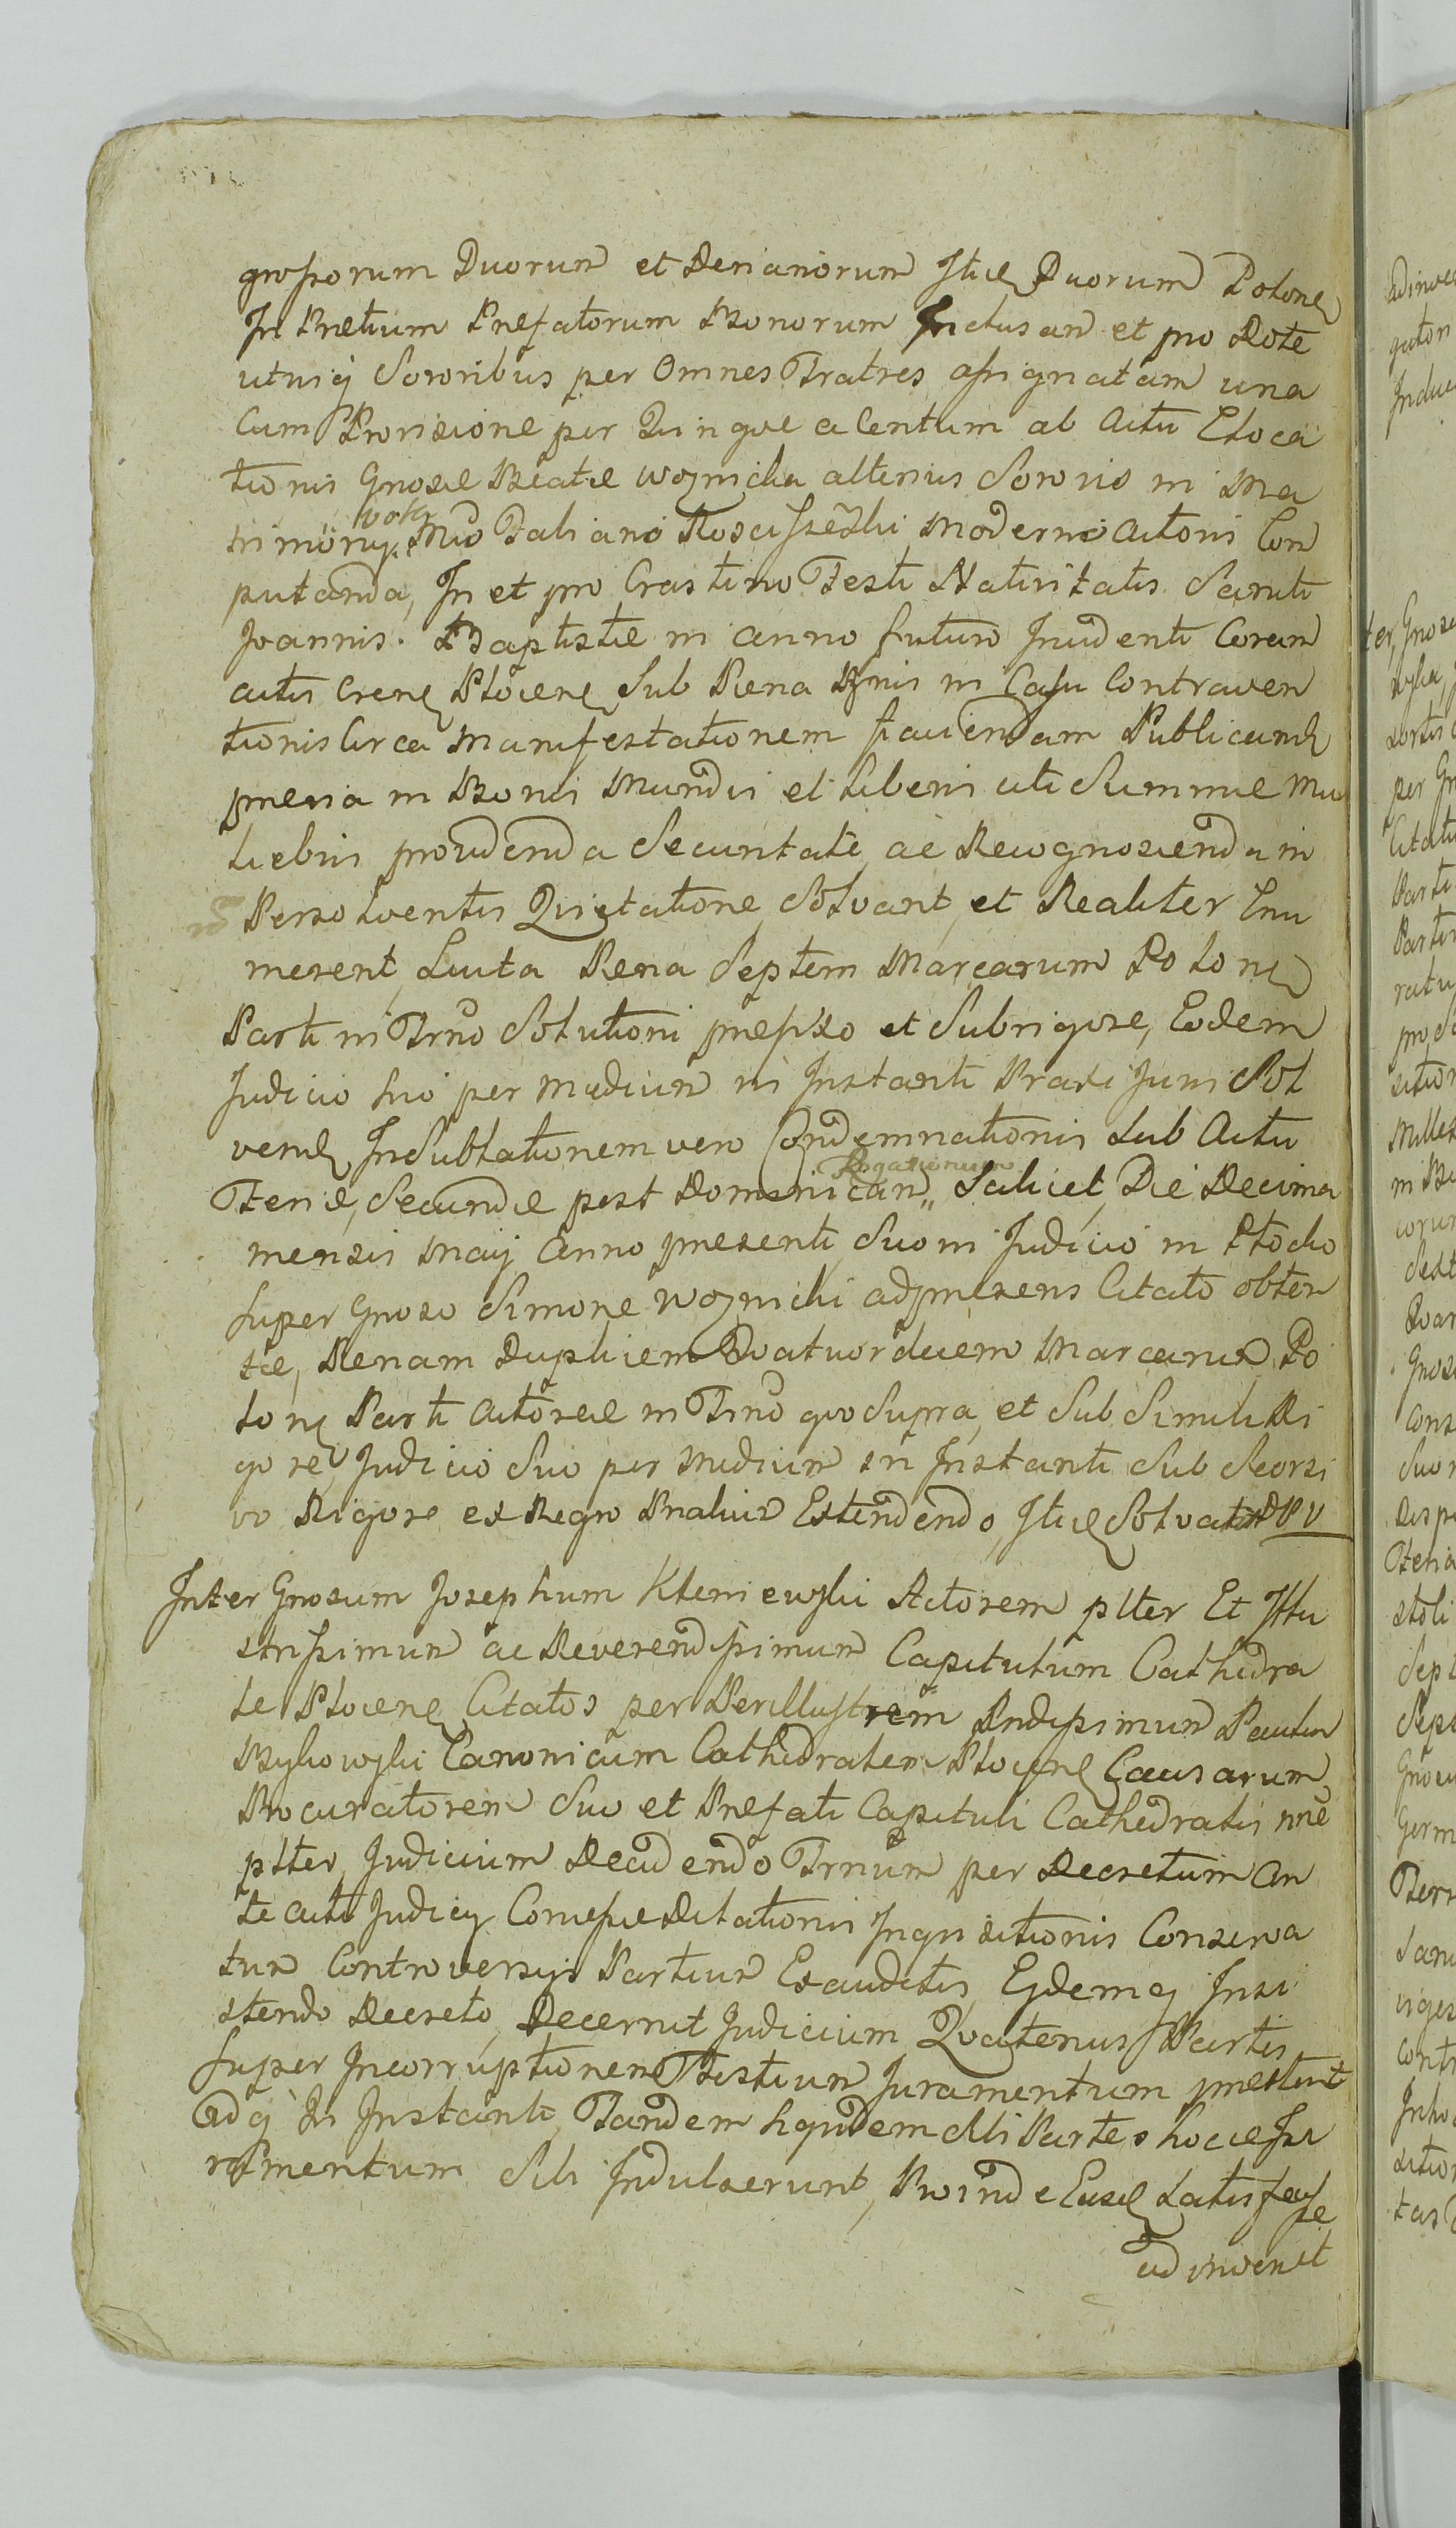 grossorum Duorum et Denariorum Itid Duorum Polon
In Pretium Prefatorum Bonorum Inclusam et pro Dote
utriq Sororibus per Omnes Fratres assignatam una
Cum Provisione per Quinque a Centum ab Actu Eloca
tionis Gnosae Beatae Woynicka alterius Sororis in Ma
trimonium Mfco Fabiano Rosciszewski moderno actori Com
putanda, In et pro Crastino Festi Nativitatis Sancti
Joannis Baptistae in anno futuro Incidenti Coram
actis Crens Plocens Sub Poena in Casu Contraven
tionis Circa Manifestationem faciendam Publicand
previa in Bonis Mundis et Liberis uti Summae Mu
liebris providenda Securitate ac Recognoscenda in
Persolventis Quietatione Solvant et Realiter Enu
merent, Luita Poena Septem Marcarum Polon
Parti in Trno Solutioni prefixo et Sub rigore, Eodem
Judicio hui per medium in Instanti Praxi Juris Sol
vend In Sublationem vero Condemnationis Sub Actu
Feriae Secundae post Dominicam Rogationum Scilicet Die Decima
mensis May Anno presenti Suo in Judicio in Plocko
Super Gnoso Simone Woynicki ad presens Citato obten
tae, Penam Duplicem Quatuordecem Marcarum Po
lon Parti Actoreae in Trno quo Supra et Sub Simili Ri
gore Judicio Suo per medium in Instanti Sub Seorsi
vo Rigore ex Regro Pnalium Extendendo, Itid Solvat DPV
Inter Gnosum Josephum Kleniewski Actorem plter Et Illu
strissimum ac Reverendissimum Capitulum Cathedra
le Plocens Citatos per Perillustrem Rndissimum Paulum
Canonicum Cathedralem Plocens Causarum
Procuratorem Suo et Prefati Capituli Cathedralis nne
plter Judicium Decidendo Trnum per Decretum An
te acti Judicy Concessae Dilationis Inquisitionis Conserva
tum Controversys Partium Exauditis, Eydemq Insi
stendo Decreto, Decernit Judicium Quatenus Partes
Super Incorruptionem Testium Juramentum prestent
Adq In Instanti, Tandem Siquidem Sibi Partes hocce Ju
ramentum Sibi Indulserunt, Proinde Eisd Satisfecisse
adinvenit